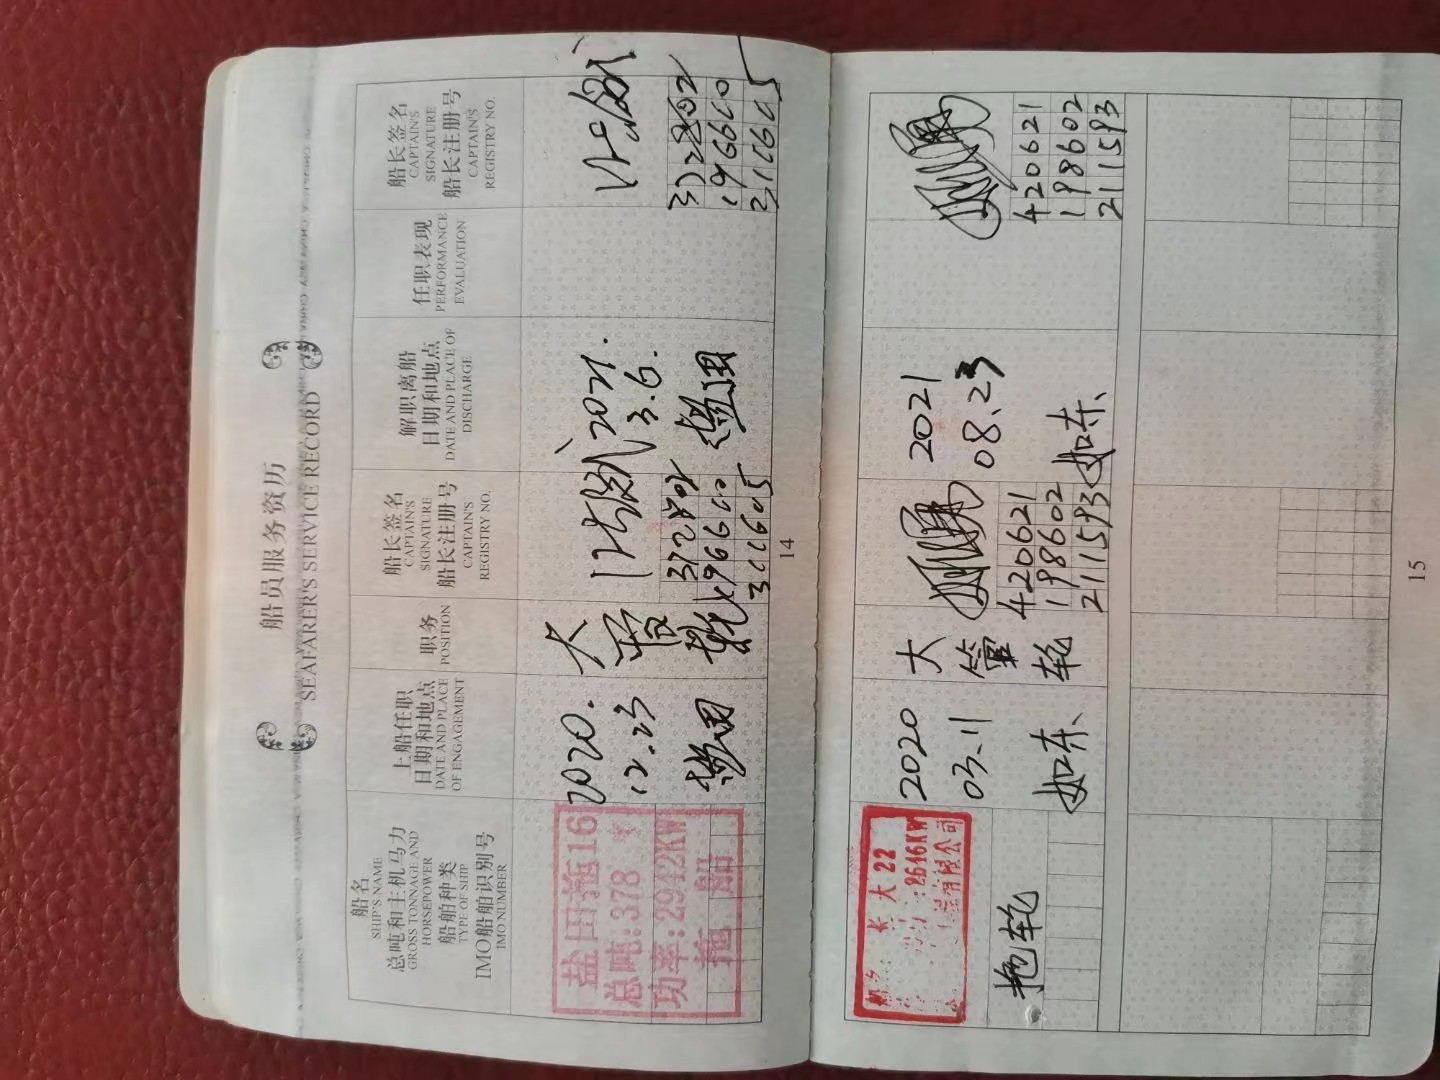 船员服务资历
SEAFARER'S SERVICE RECORD
船名
SHIP'S NAME
总吨和主机马力
GROSS TONNAGE AND
HORSEPOWER
船舶种类
TYPE OF SHIP
IMO船舶识别号
IMO NUMBER
上船任职
日期和地点
DATE AND PLACE
OF ENGAGEMENT
职务
POSITION
船长签名
CAPTAIN'S
SIGNATURE
船长注册号
CAPTAIN'S
REGISTRY NO.
解职离船
日期和地点
DATE AND PLACE OF
DISCHARGE
任职表现
PERFORMANCE
EVALUATION
船长签名
CAPTAIN'S
SIGNATURE
船长注册号
CAPTAIN'S
REGISTRY NO.
盐田拖16
总吨:378
功率:2942KW
拖 船
2020.
12.23
盐田
大
管
轮
2021.
3.6.
盐田
14
长大22
:2616KW
有限公司
拖轮
2020
03.11
如东
大
管
轮
420621
198602
211593
2021
08.23
如东
420621
198602
211593
15